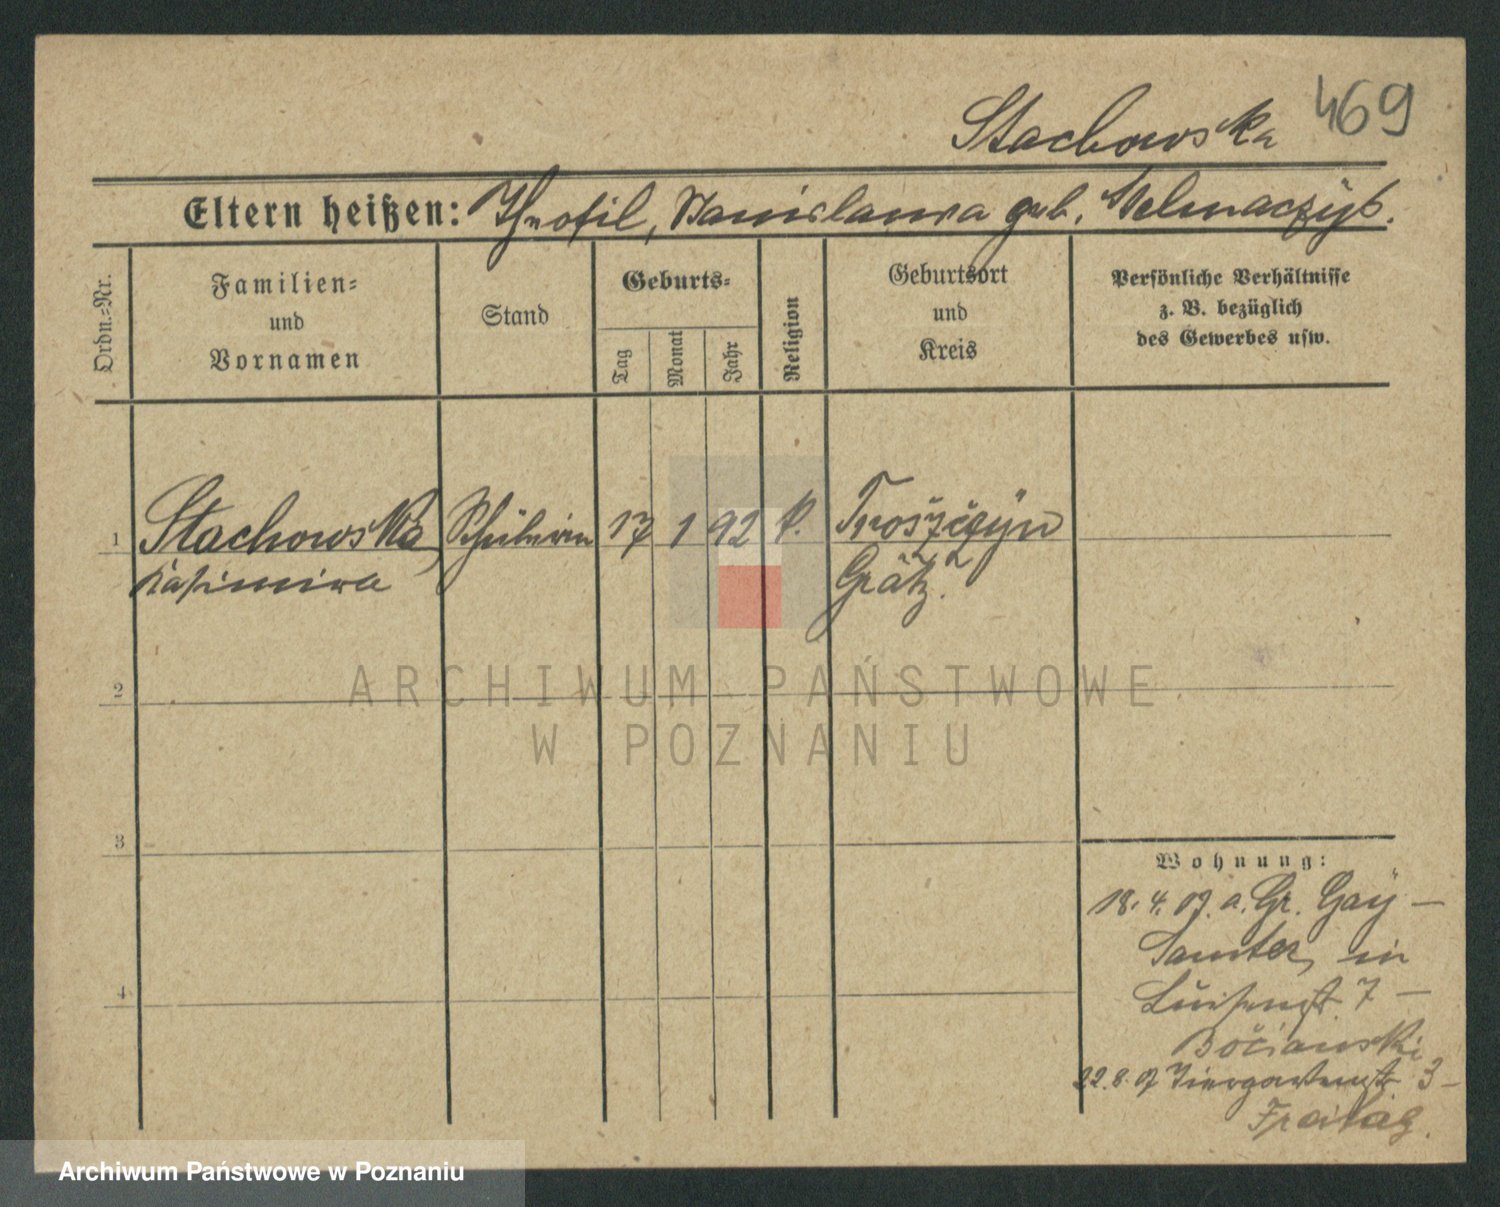 469
Stachowska
Eltern heißen: Theofil, Stanislawa geb. Stelmaczyk.
Ordn.=Nr.
Familien=
und
Vornamen
Stand
Geburts=
Tag
Monat
Jahr
Religion
Geburtsort
und
Kreis
Persönliche Verhältnisse
z. B. bezüglich
des Gewerbes usw.
1 Stachowska Schülerin 17 1 92 k.
Kasimira Grätz.
2
3
4
Wohnung:
18. 4. 07. a. Gr. Gay –
Samter, in
Luisenst. 7 –
Bočianski
22. 8. 07 Tiergartenst 3 –
Freitag.
ARCHIWUM PAŃSTWOWE
W POZNANIU
Archiwum Państwowe w Poznaniu